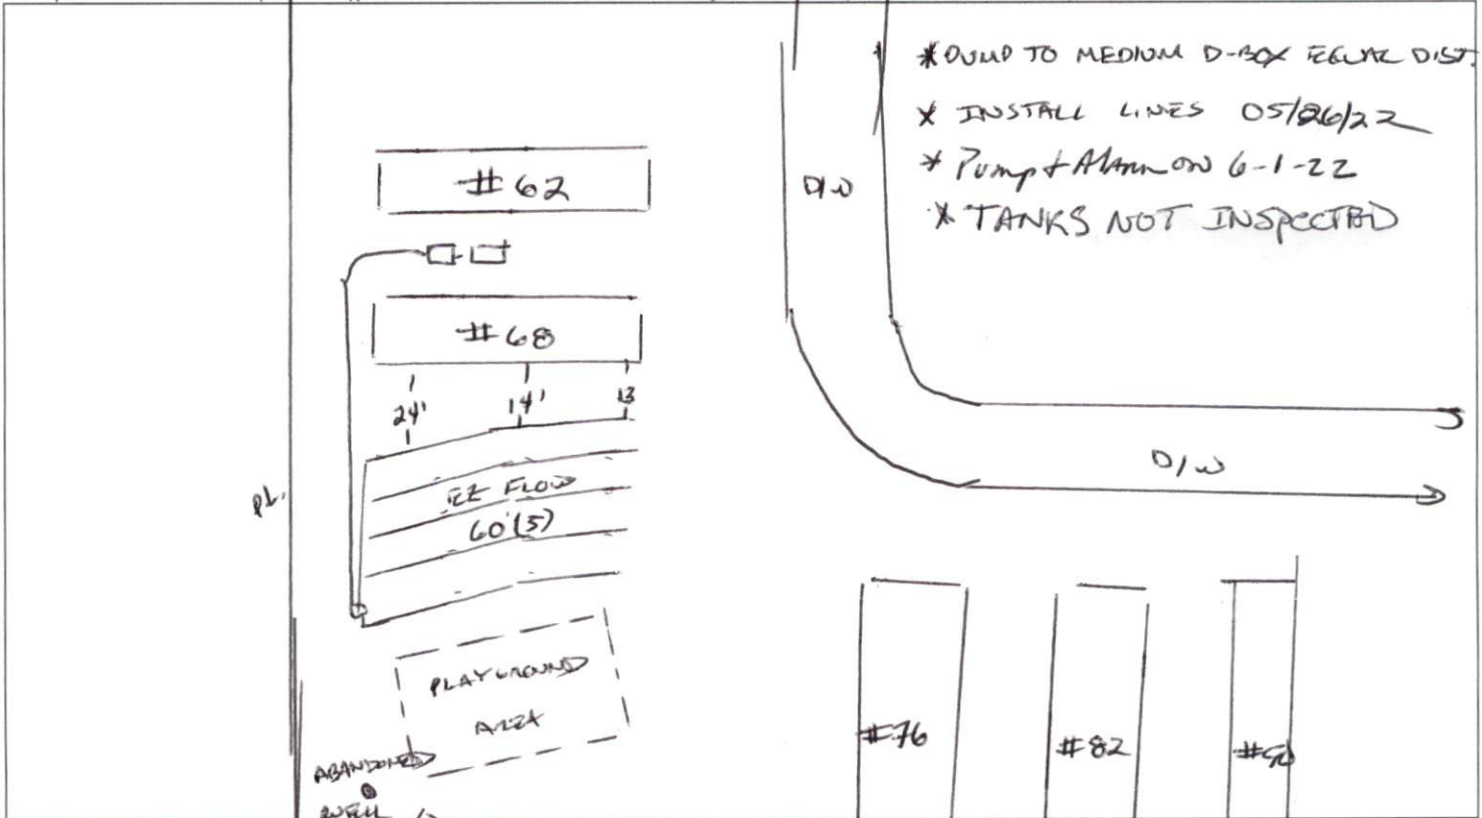 * PUMP TO MEDIUM D-BOX EQUAL DIST.
* INSTALL LINES 05/26/22
* Pump & Alarm on 6-1-22
* TANKS NOT INSPECTED
#62
D/W
#68
24'
14'
13
D/W
EZ FLOW
60'(5)
PL.
PLAYGROUND
AREA
#76
#82
ABANDONED
WELL